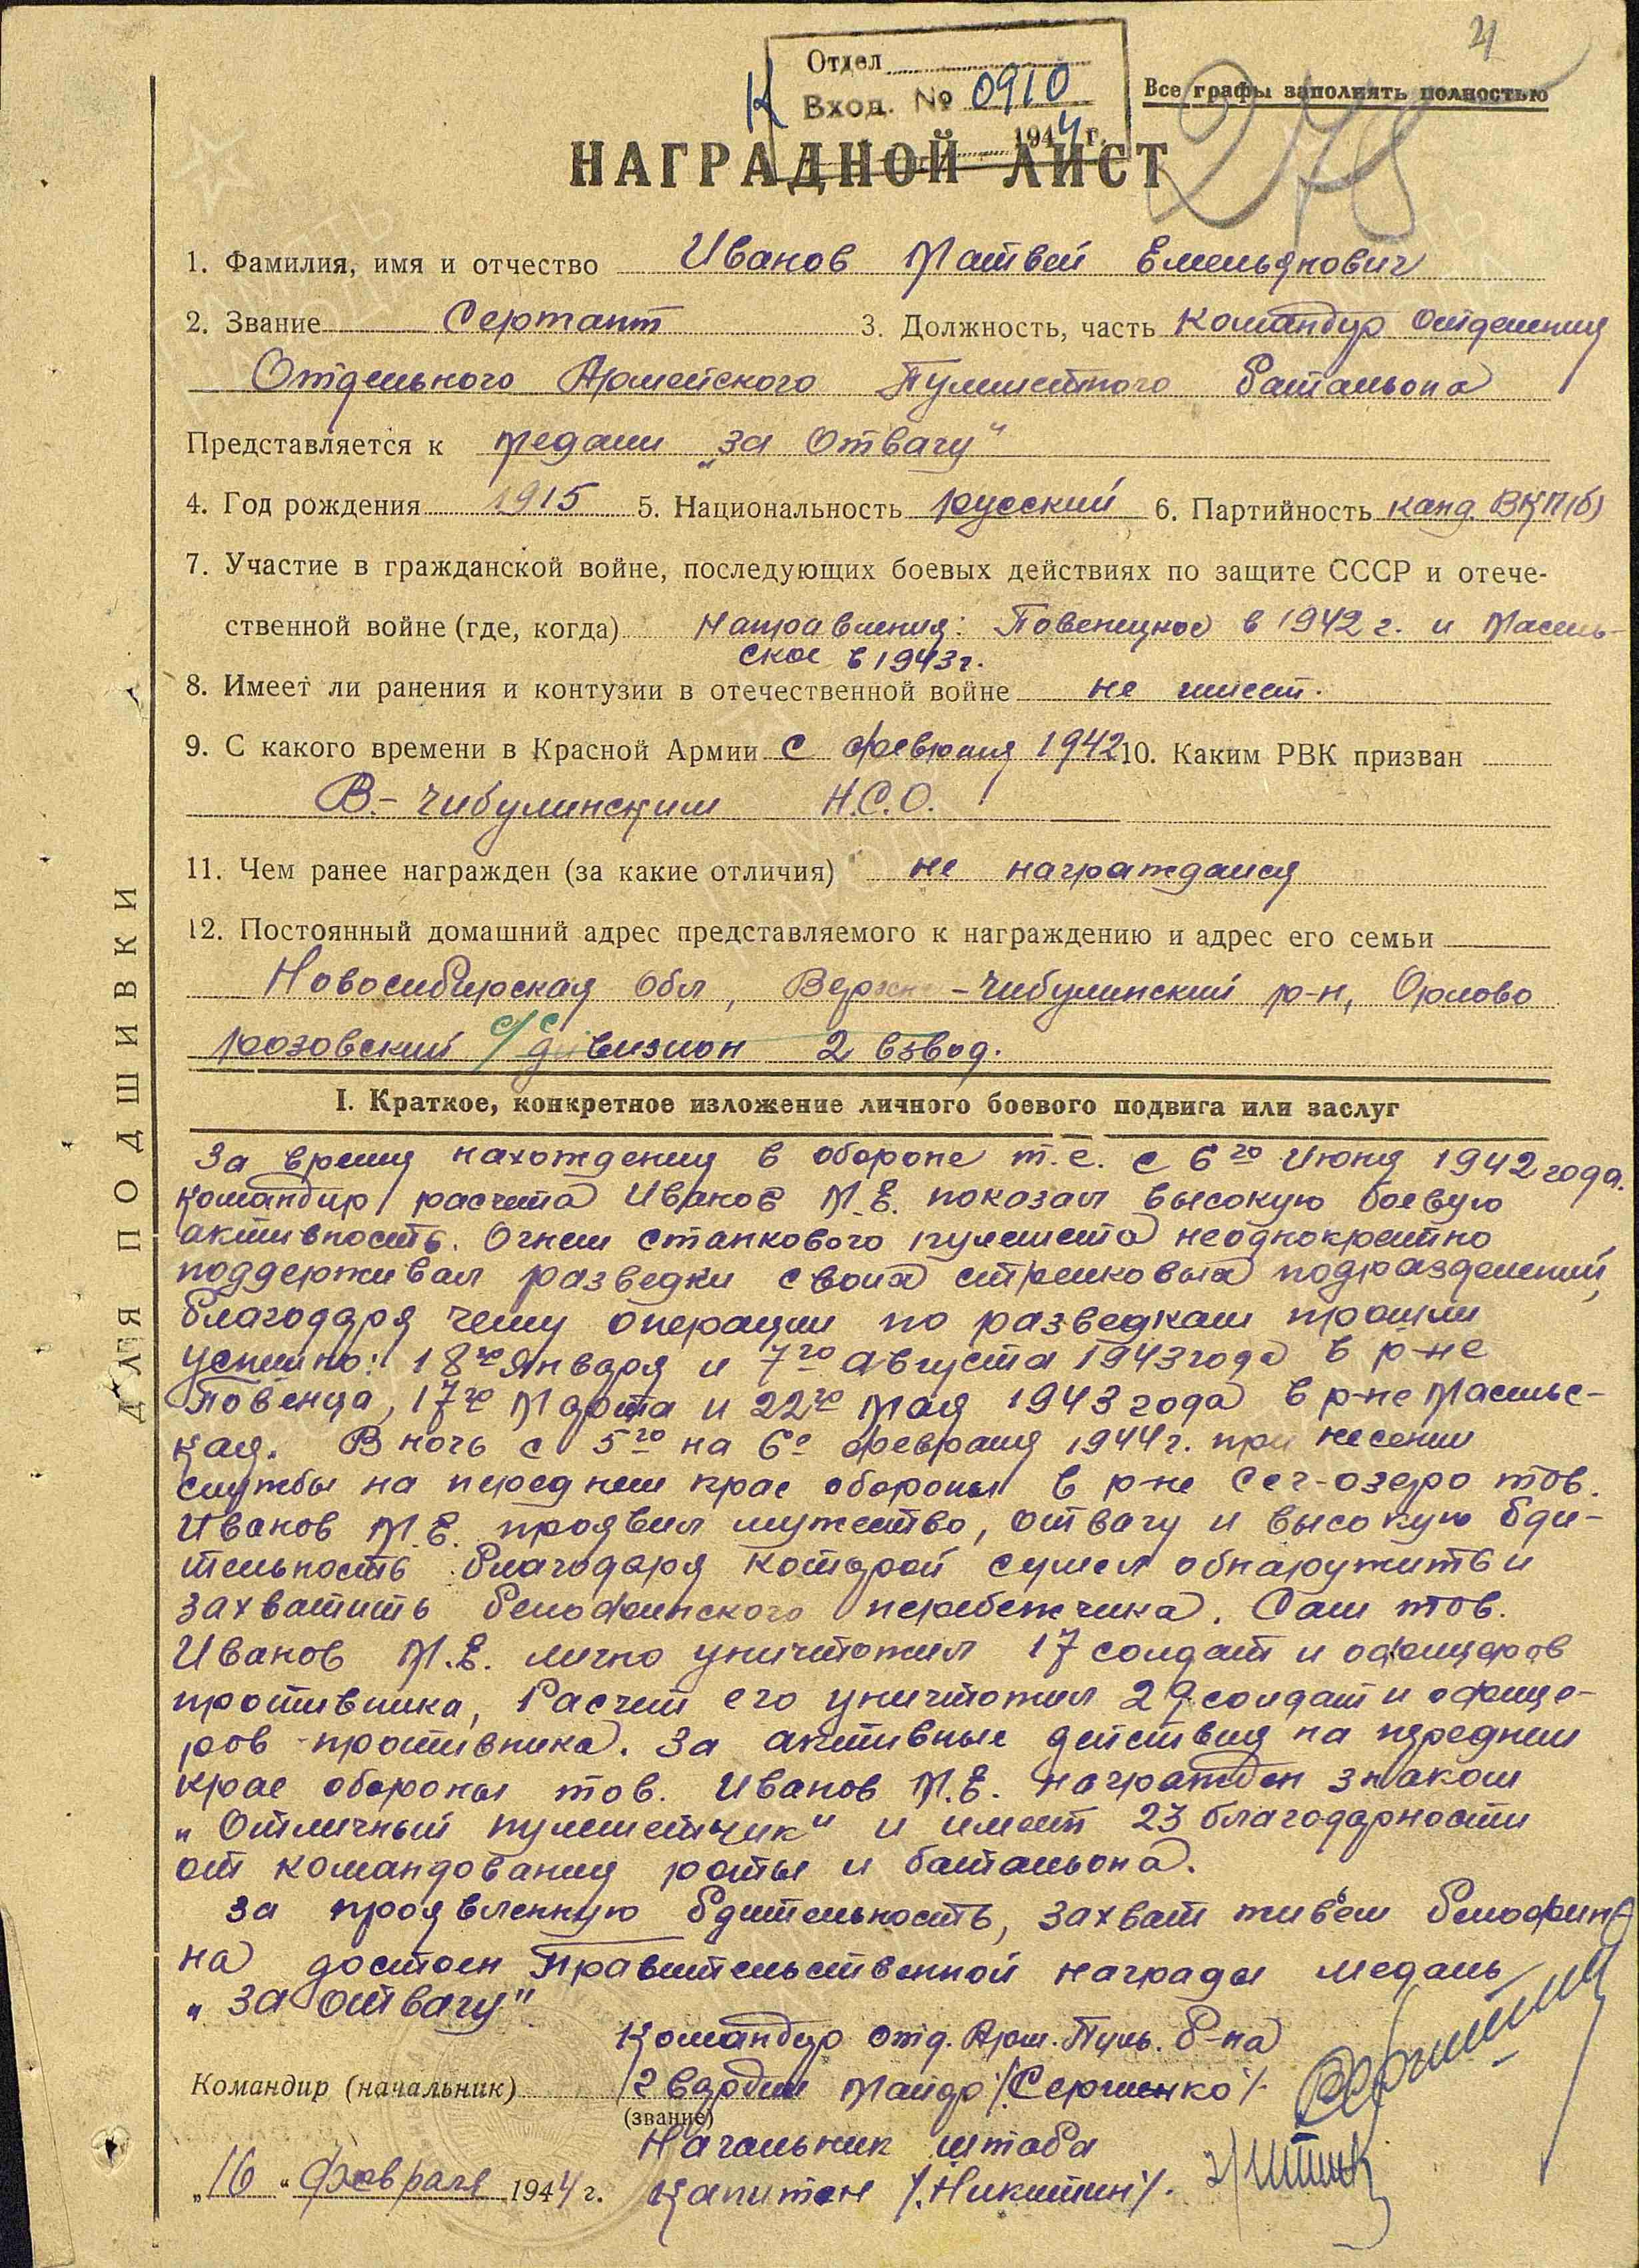 4
Отдел
К Вход. № 0910
1944 г.
Все графы заполнять полностью
278
НАГРАДНОЙ ЛИСТ
1. Фамилия, имя и отчество Иванов Матвей Емельянович
2. Звание Сержант 3. Должность, часть командир отделения
Отдельного Армейского Пулеметного батальона
Представляется к медали „за Отвагу"
4. Год рождения 1915 5. Национальность русский 6. Партийность канд. ВКП(б)
7. Участие в гражданской войне, последующих боевых действиях по защите СССР и отече-
ственной войне (где, когда) Направления: Повенецкое в 1942 г. и Масель-
ское в 1943 г.
8. Имеет ли ранения и контузии в отечественной войне не имеет.
9. С какого времени в Красной Армии с февраля 1942 10. Каким РВК призван
В.-Чибулинским Н.С.О.
11. Чем ранее награжден (за какие отличия) не награждался
12. Постоянный домашний адрес представляемого к награждению и адрес его семьи
Новосибирская обл, Верхне-Чибулинский р-н, Орлово
розовский с/с дивизион 2 взвод.
ДЛЯ ПОДШИВКИ
I. Краткое, конкретное изложение личного боевого подвига или заслуг
За время нахождения в обороне т.е. с 6го Июня 1942 года.
командир расчета Иванов М.Е. показал высокую боевую
активность. Огнем станкового пулемета неоднократно
поддерживал разведки своих стрелковых подразделений,
благодаря чему операции по разведкам прошли
успешно: 18го Января и 7го августа 1943 года в р-не
Повенца, 17го Марта и 22го Мая 1943 года в р-не Масельс-
кая. В ночь с 5го на 6е февраля 1944 г. при несении
службы на переднем крае обороны в р-не Сег-озеро тов.
Иванов М.Е. проявил мужество, отвагу и высокую бди-
тельность благодаря которой сумел обнаружить и
захватить белофинского перебежчика. Сам тов.
Иванов М.Е. лично уничтожил 17 солдат и офицеров
противника, Расчет его уничтожил 29 солдат и офице-
ров противника. За активные действия на переднем
крае обороны тов. Иванов М.Е. награжден знаком
„Отличный пулеметчик" и имеет 23 благодарности
от командования роты и батальона.
За проявленную бдительность, захват живьем белофин
на достоен Правительственной награды медаль
„За отвагу"
Командир отд. Арм. Пуль. б-на
Командир (начальник) гвардии майор /Сергиенко/
(звание)
Начальник штаба
„16" февраля 1944 г. капитан /Никитин/.